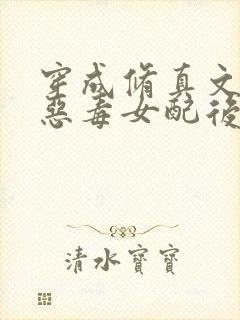 穿成脩真文
惡毒女配後
清水寶寶